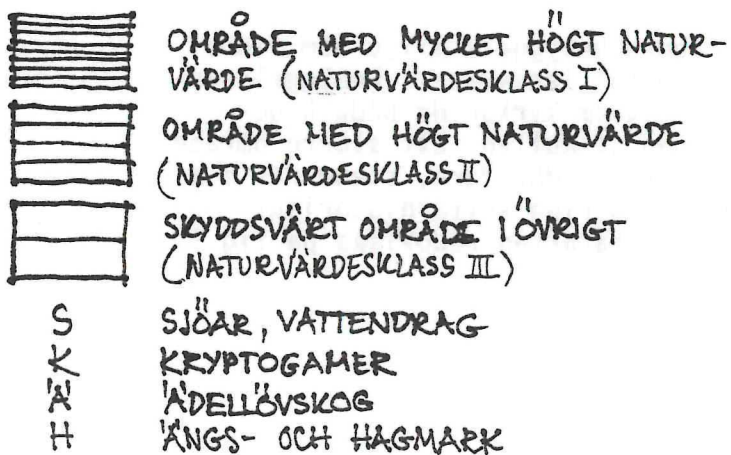 OMRÅDE MED MYCKET HÖGT NATUR-
VÄRDE (NATURVÄRDESKLASS I)
OMRÅDE MED HÖGT NATURVÄRDE
(NATURVÄRDESKLASS II)
SKYDDSVÄRT OMRÅDE I ÖVRIGT
(NATURVÄRDESKLASS III)
S SJÖAR, VATTENDRAG
K KRYPTOGAMER
Ä ÄDELLÖVSKOG
H ÄNGS- OCH HAGMARK